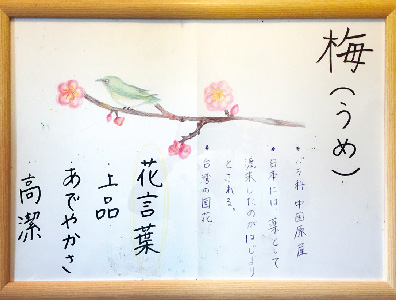 梅(うめ)
・バラ科 中国原産
・日本には 薬として
渡来したのがはじまり
とされる。
・台湾の国花
花言葉
上品
あでやかさ
高潔